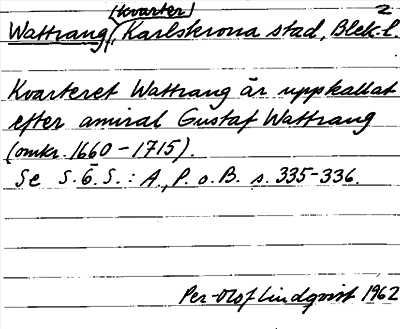 (kvarter) 2
Wattrang, Karlskrona stad, Blek. l.
Kvarteret Wattrang är uppkallat
efter amiral Gustaf Wattrang
(omkr. 1660 - 1715).
Se S.Ö.S.: A, P. o. B. s. 335-336.
Per-Olof Lindqvist 1962